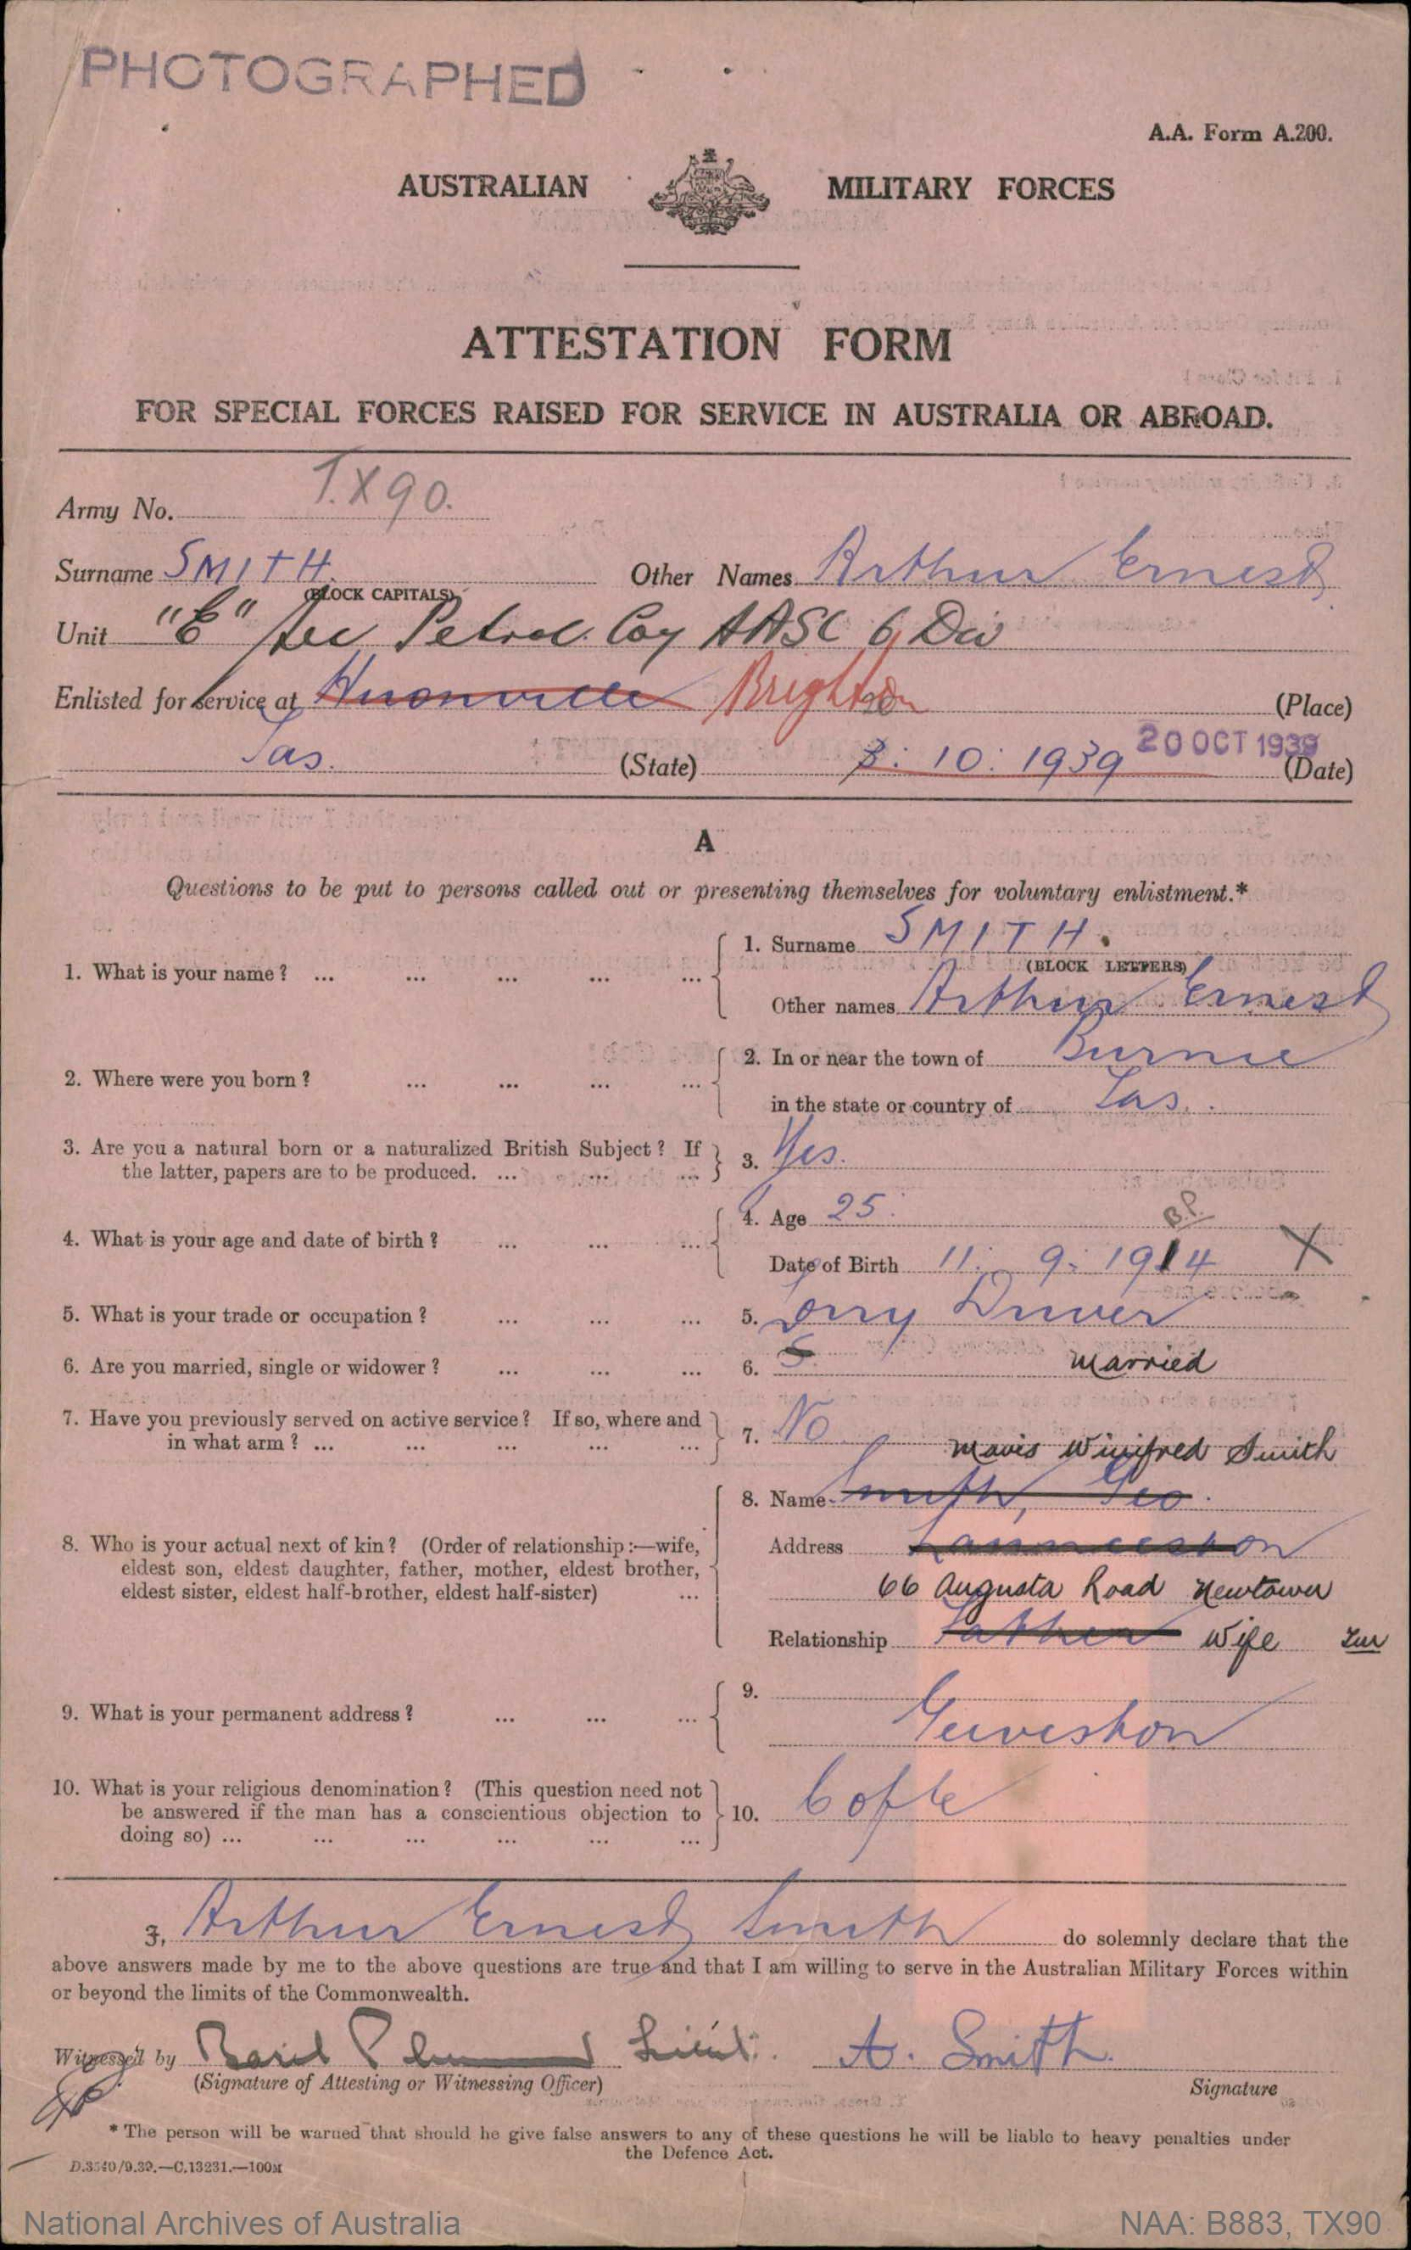 PHOTOGRAPHED
A.A. Form A.200.
AUSTRALIAN MILITARY FORCES
ATTESTATION FORM
FOR SPECIAL FORCES RAISED FOR SERVICE IN AUSTRALIA OR ABROAD.
Army No. T.X90.
Surname SMITH. Other Names Arthur Ernest
(BLOCK CAPITALS)
Unit "E" Sec Petrol. Coy AASC 6 Div
Enlisted for service at Huonville Brighton (Place)
Tas. (State) 3: 10: 1939 20 OCT 1939 (Date)
A
Questions to be put to persons called out or presenting themselves for voluntary enlistment.*
1. What is your name? ... ... ... ... ... 1. Surname SMITH.
(BLOCK LETTERS)
Other names Arthur Ernest
2. Where were you born? ... ... ... ... 2. In or near the town of Burnie
in the state or country of Tas.
3. Are you a natural born or a naturalized British Subject? If the latter, papers are to be produced. ... ... ... 3. Yes.
4. What is your age and date of birth? ... ... ... 4. Age 25.
B.P.
Date of Birth 11. 9. 1914 X
5. What is your trade or occupation? ... ... ... 5. Lorry Driver
6. Are you married, single or widower? ... ... ... 6. S. married
7. Have you previously served on active service? If so, where and in what arm? ... ... ... ... ... 7. No
Mavis Winifred Smith
8. Who is your actual next of kin? (Order of relationship:—wife, eldest son, eldest daughter, father, mother, eldest brother, eldest sister, eldest half-brother, eldest half-sister) ... 8. Name Smith, Geo.
Address Launceston
66 Augusta Road Newtown
Relationship Father Wife
9. What is your permanent address? ... ... ... 9.
Geeveston
10. What is your religious denomination? (This question need not be answered if the man has a conscientious objection to doing so) ... ... ... ... ... ... 10. C of E
I, Arthur Ernest Smith do solemnly declare that the
above answers made by me to the above questions are true and that I am willing to serve in the Australian Military Forces within
or beyond the limits of the Commonwealth.
Witnessed by Lieut. A. Smith
(Signature of Attesting or Witnessing Officer) Signature
* The person will be warned that should he give false answers to any of these questions he will be liable to heavy penalties under
the Defence Act.
D.3540/9.39.—C.13231.—100M
National Archives of Australia NAA: B883, TX90